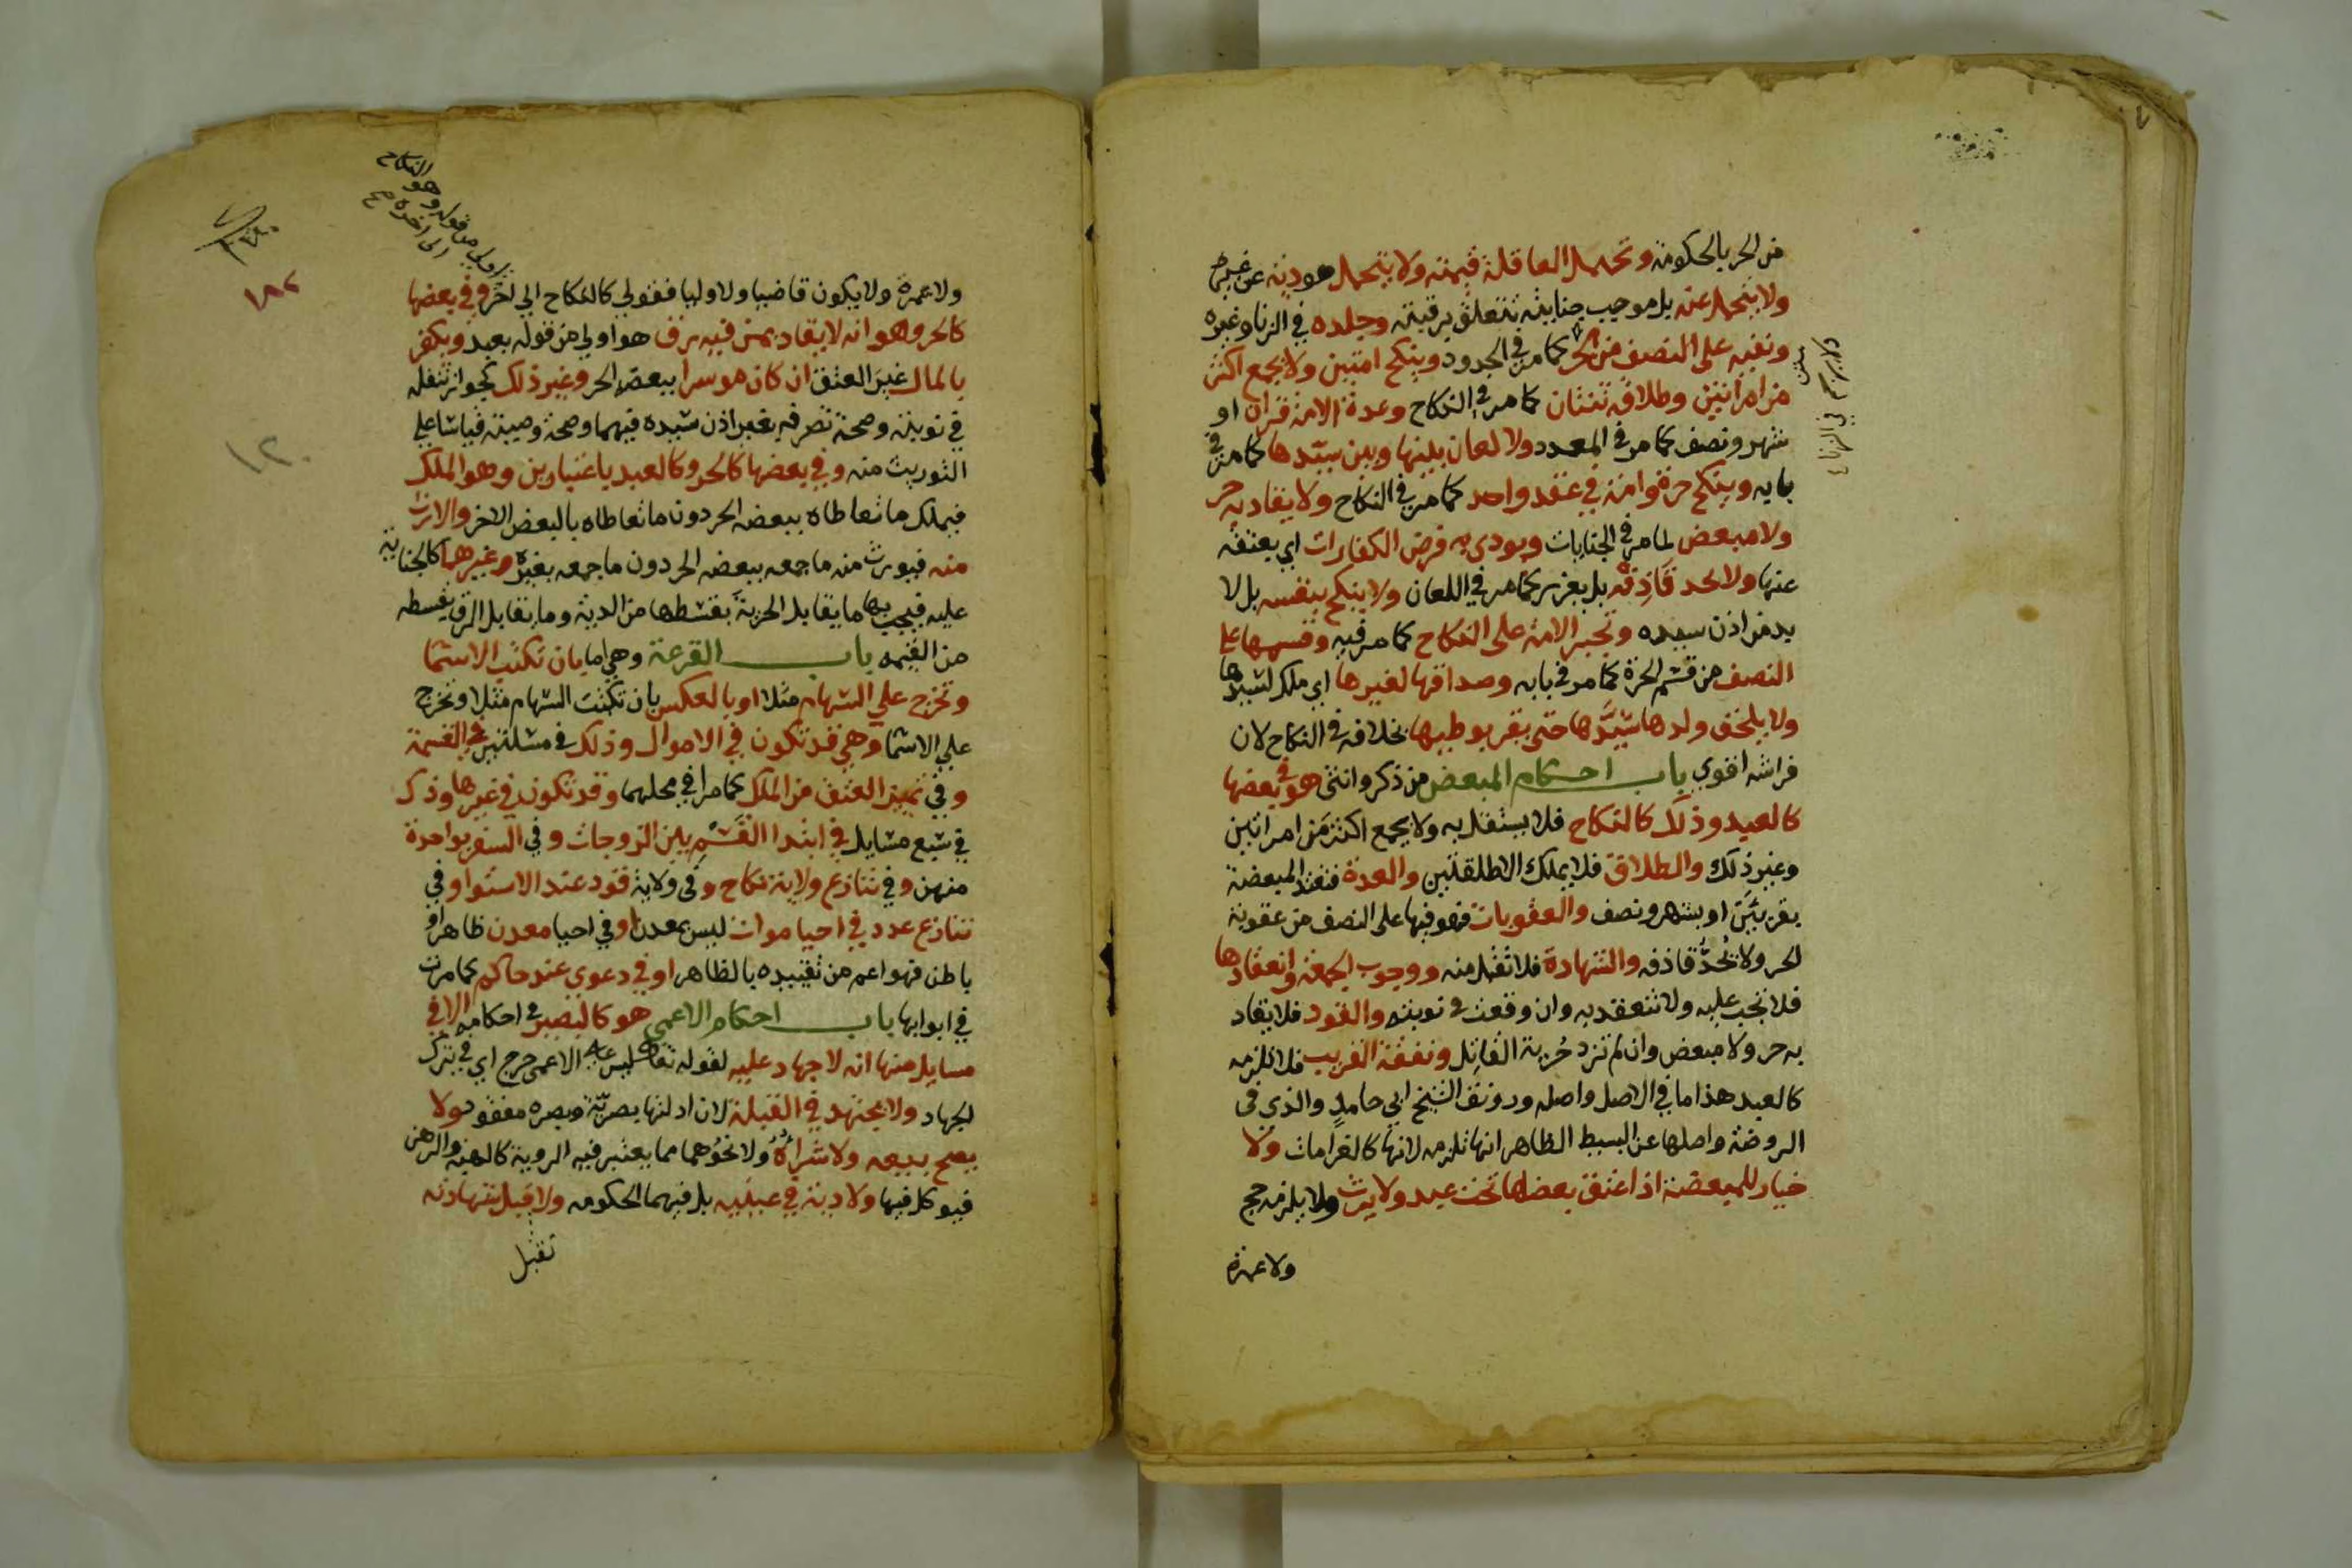 من الحر بالحكومة وتحمل العاقلة قيمته ولا يتحمل هو دية عن غيره
ولا يتحمل عنه بل موجب جنايته تتعلق برقبته وجلده في الزنا وغيره
ونفيه على النصف من الحر كما مر في الحدود وينكح امتين ولا يجمع اكثر
من امراتين وطلاقه ثنتان كما مر في النكاح وعدة الامة قران او
شهر ونصف كما مر في العدد ولا لعان بينها وبين سيدها كما مر في
بابه وينكح حرة وامة في عقد واحد كما مر في النكاح ولا يقاد به حر
ولا مبعض لما مر في الجنايات ويودي به فرض الكفارات اي بعتقه
عنها ولا يحد قاذفه بل يعزر كما مر في اللعان ولا ينكح بنفسه بل لا
بد من اذن سيده وتجبر الامة على النكاح كما مر فيه وقسمها على
النصف من قسم الحرة كما مر في بابه وصداقها لغيرها اي ملك لسيدها
ولا يلحق ولدها سيدها حتى يقر بوطيها بخلافه في النكاح لان
فراشه اقوي باب احكام المبعض من ذكر وانثى هو في بعضها
كالعبد وذلك كالنكاح فلا يستقل به ولا يجمع اكثر من امراتين
وغير ذلك والطلاق فلا يملك الا طلقتين والعدة فتعتد المبعضة
بقرئين او بشهر ونصف والعقوبات فهو فيها على النصف من عقوبة
الحر ولا يحد قاذفه والشهادة فلا تقبل منه ووجوب الجمعة وانعقادها
فلا تجب عليه ولا تنعقد به وان وقعت في نوبته والقود فلا يقاد
به حر ولا مبعض وان لم تزد حرية القاتل ونفقة القريب فلا تلزمه
كالعبد هذا ما في الاصل واصله ورونق الشيخ ابي حامد والذي في
الروضة واصلها عن البسيط الظاهر انها تلزمه لانها كالغرامات ولا
خيار للمبعضة اذا اعتق بعضها تحت عبد ولا يرث ولا يلزمه حج
ولا عمرة
النكاح
اولى من قوله وهو
الى اخره صح
١٨٢
١٢٠
ولا عمرة ولا يكون قاضيا ولا وليا فقولي كالنكاح الى اخره وفي بعضها
كالحر وهو انه لا يقاد بمن فيه رق هو اولي من قوله بعبد ويكفر
بالمال غير العتق ان كان موسرا ببعضه الحر وغير ذلك كجواز تنفله
في نوبته وصحة تصرفه بغير اذن سيده فيهما وصحة وصيته قياسا على
التوريث منه وفي بعضها كالحر وكالعبد باعتبارين وهو الملك
فيملك ما تعاطاه ببعضه الحر دون ما تعاطاه بالبعض الاخر والارث
منه فيورث منه ما جمعه ببعضه الحر دون ما جمعه بغيره وغيرهما كالجناية
عليه فيجب بها ما يقابل الحرية بقسطها من الدية وما يقابل الرق بقسطه
من القيمه باب القرعة وهي اما بان تكتب الاسما
وتخرج على السهام مثلا او بالعكس بان تكتب السهام مثلا وتخرج
على الاسما وهي قد تكون في الاموال وذلك في مسئلتين في القسمة
وفي تمييز العتق من الملك كما مرا في محلهما وقد تكون في غيرها وذلك
في سبع مسايل في ابتدا القسم بين الزوجات وفي السفر بواحدة
منهن وفي تنازع ولاية نكاح وفي ولاية قود عند الاستوا وفي
تنازع عدد في احيا موات ليس بمعدن او في احيا معدن ظاهر او
باطن فهو اعم من تقييده بالظاهر او في دعوي عند حاكم كما مرت
في ابوابها باب احكام الاعمى هو كالبصير في احكامه الا في
مسايل منها انه لا جهاد عليه لقوله تعالى ليس على الاعمى حرج اي في ترك
الجهاد ولا يجتهد في القبلة لان ادلتها بصرية وبصره مفقود ولا
يصح بيعه ولا شراؤه ولا نحوهما مما يعتبر فيه الروية كالهبة والرهن
فيوكل فيها ولا دية في عينيه بل فيهما الحكومه ولا تقبل شهادته
تقبل